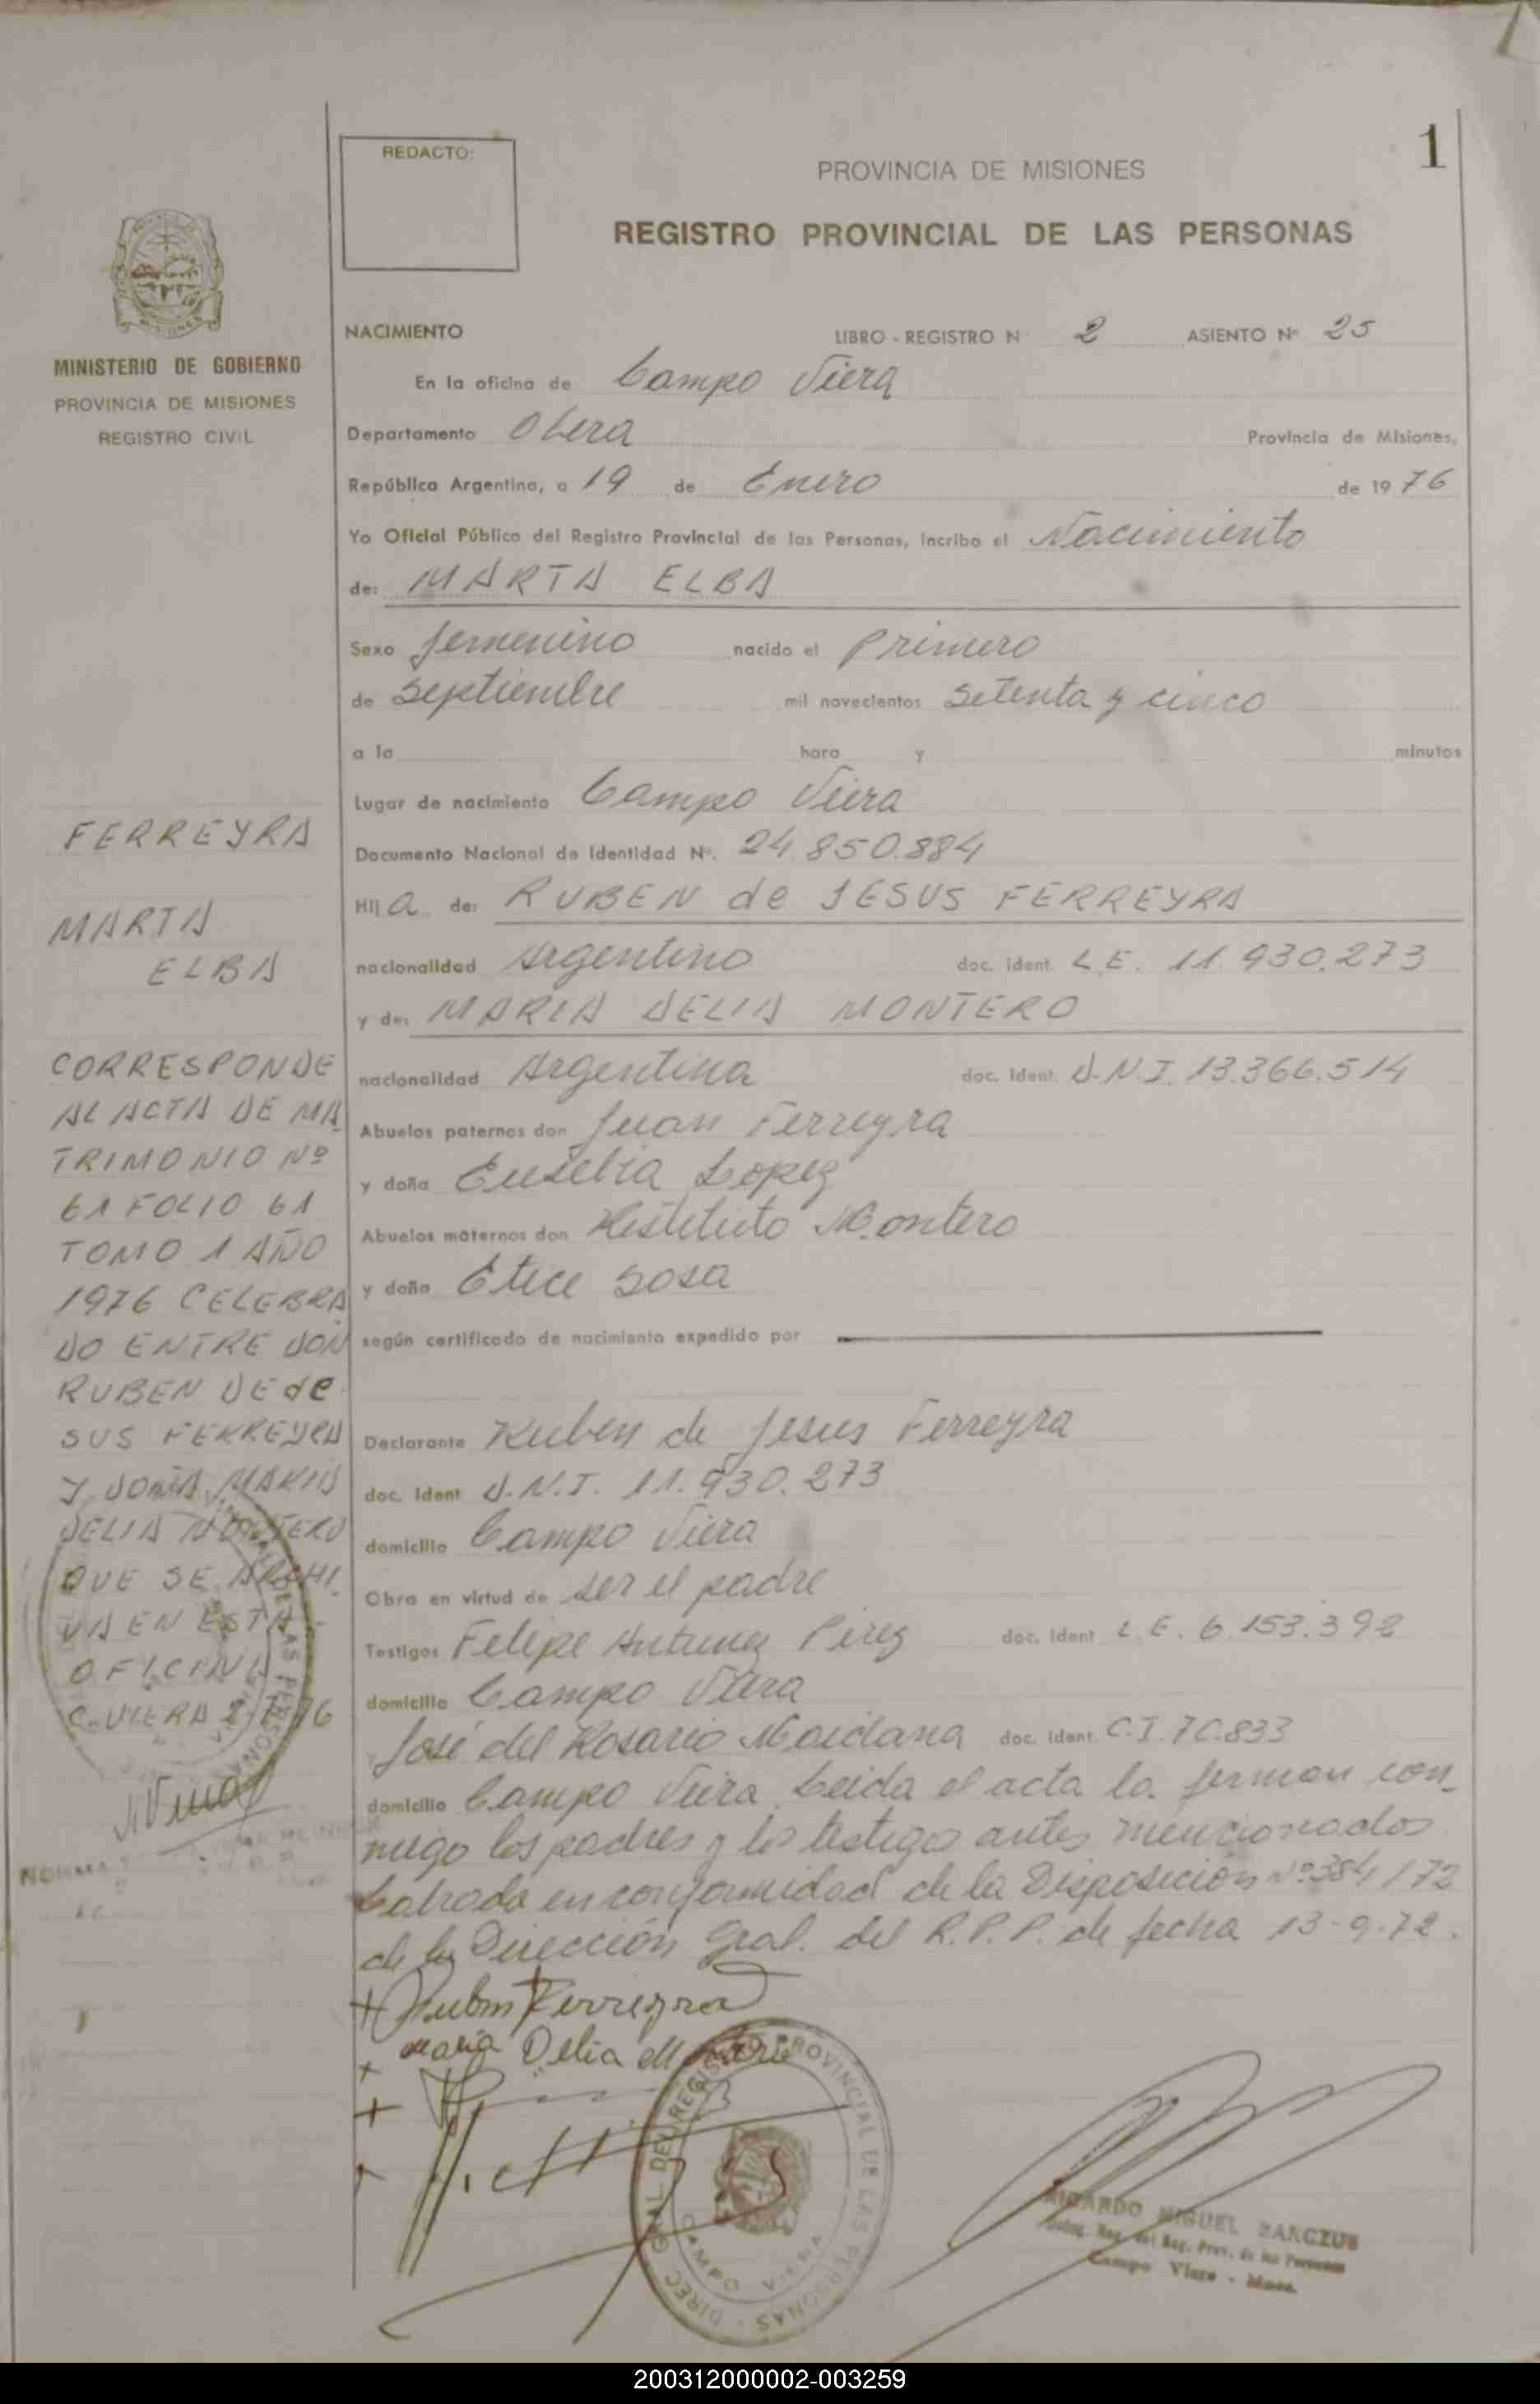 1
REDACTO:
PROVINCIA DE MISIONES
REGISTRO PROVINCIAL DE LAS PERSONAS
MINISTERIO DE GOBIERNO
PROVINCIA DE MISIONES
REGISTRO CIVIL
NACIMIENTO LIBRO - REGISTRO N 2 ASIENTO Nº 25
En la oficina de Campo Viera
Departamento Obera Provincia de Misiones,
República Argentina, a 19 de Enero de 1976
Yo Oficial Público del Registro Provincial de las Personas, incribo el Nacimiento
de: MARTA ELBA
Sexo femenino nacido el Primero
de Septiembre mil novecientos Setenta y cinco
a la hora y minutos
Lugar de nacimiento Campo Viera
Documento Nacional de Identidad Nº. 24.850.884
Hij a de: RUBEN de JESUS FERREYRA
nacionalidad Argentino doc. ident. L.E. 11.930.273
y de: MARIA DELIA MONTERO
nacionalidad Argentina doc. ident. D.N.I. 13.366.514
Abuelos paternos don Juan Ferreyra
y doña Eusebia Lopez
Abuelos maternos don Montero
y doña Sosa
según certificado de nacimiento expedido por
Declarante Ruben de Jesus Ferreyra
doc. ident D.N.I. 11.930.273
domicilio Campo Viera
Obra en virtud de ser el padre
Testigos Felipe Antunez Pirez doc. ident L.E. 6.153.398
domicilio Campo Viera
José del Rosario Maidana doc. ident. C.I. 70.833
domicilio Campo Viera. Leida el acta la firman con-
migo los padres y los testigos antes mencionados
Labrada en conformidad de la Disposición Nº 384/72
de la Dirección Gral. del R.P.P. de fecha 13-9-72.
FERREYRA
MARTA
ELBA
CORRESPONDE
AL ACTA DE MA
TRIMONIO Nº
61 FOLIO 61
TOMO 1 AÑO
1976 CELEBRA
DO ENTRE DON
RUBEN DE Je
SUS FERREYRA
Y DOÑA MARIA
DELIA MONTERO
QUE SE ARCHI
VA EN ESTA
OFICINA
C. VIERA 2-7-76
Ruben Ferreyra
Maria Delia Montero
DIREC. GRAL. DEL REGISTRO PROVINCIAL DE LAS PERSONAS
CAMPO VIERA
RICARDO MIGUEL ZANCZUK
Deleg. Reg. del Reg. Prov. de las Personas
Campo Viera - Mnes.
200312000002-003259